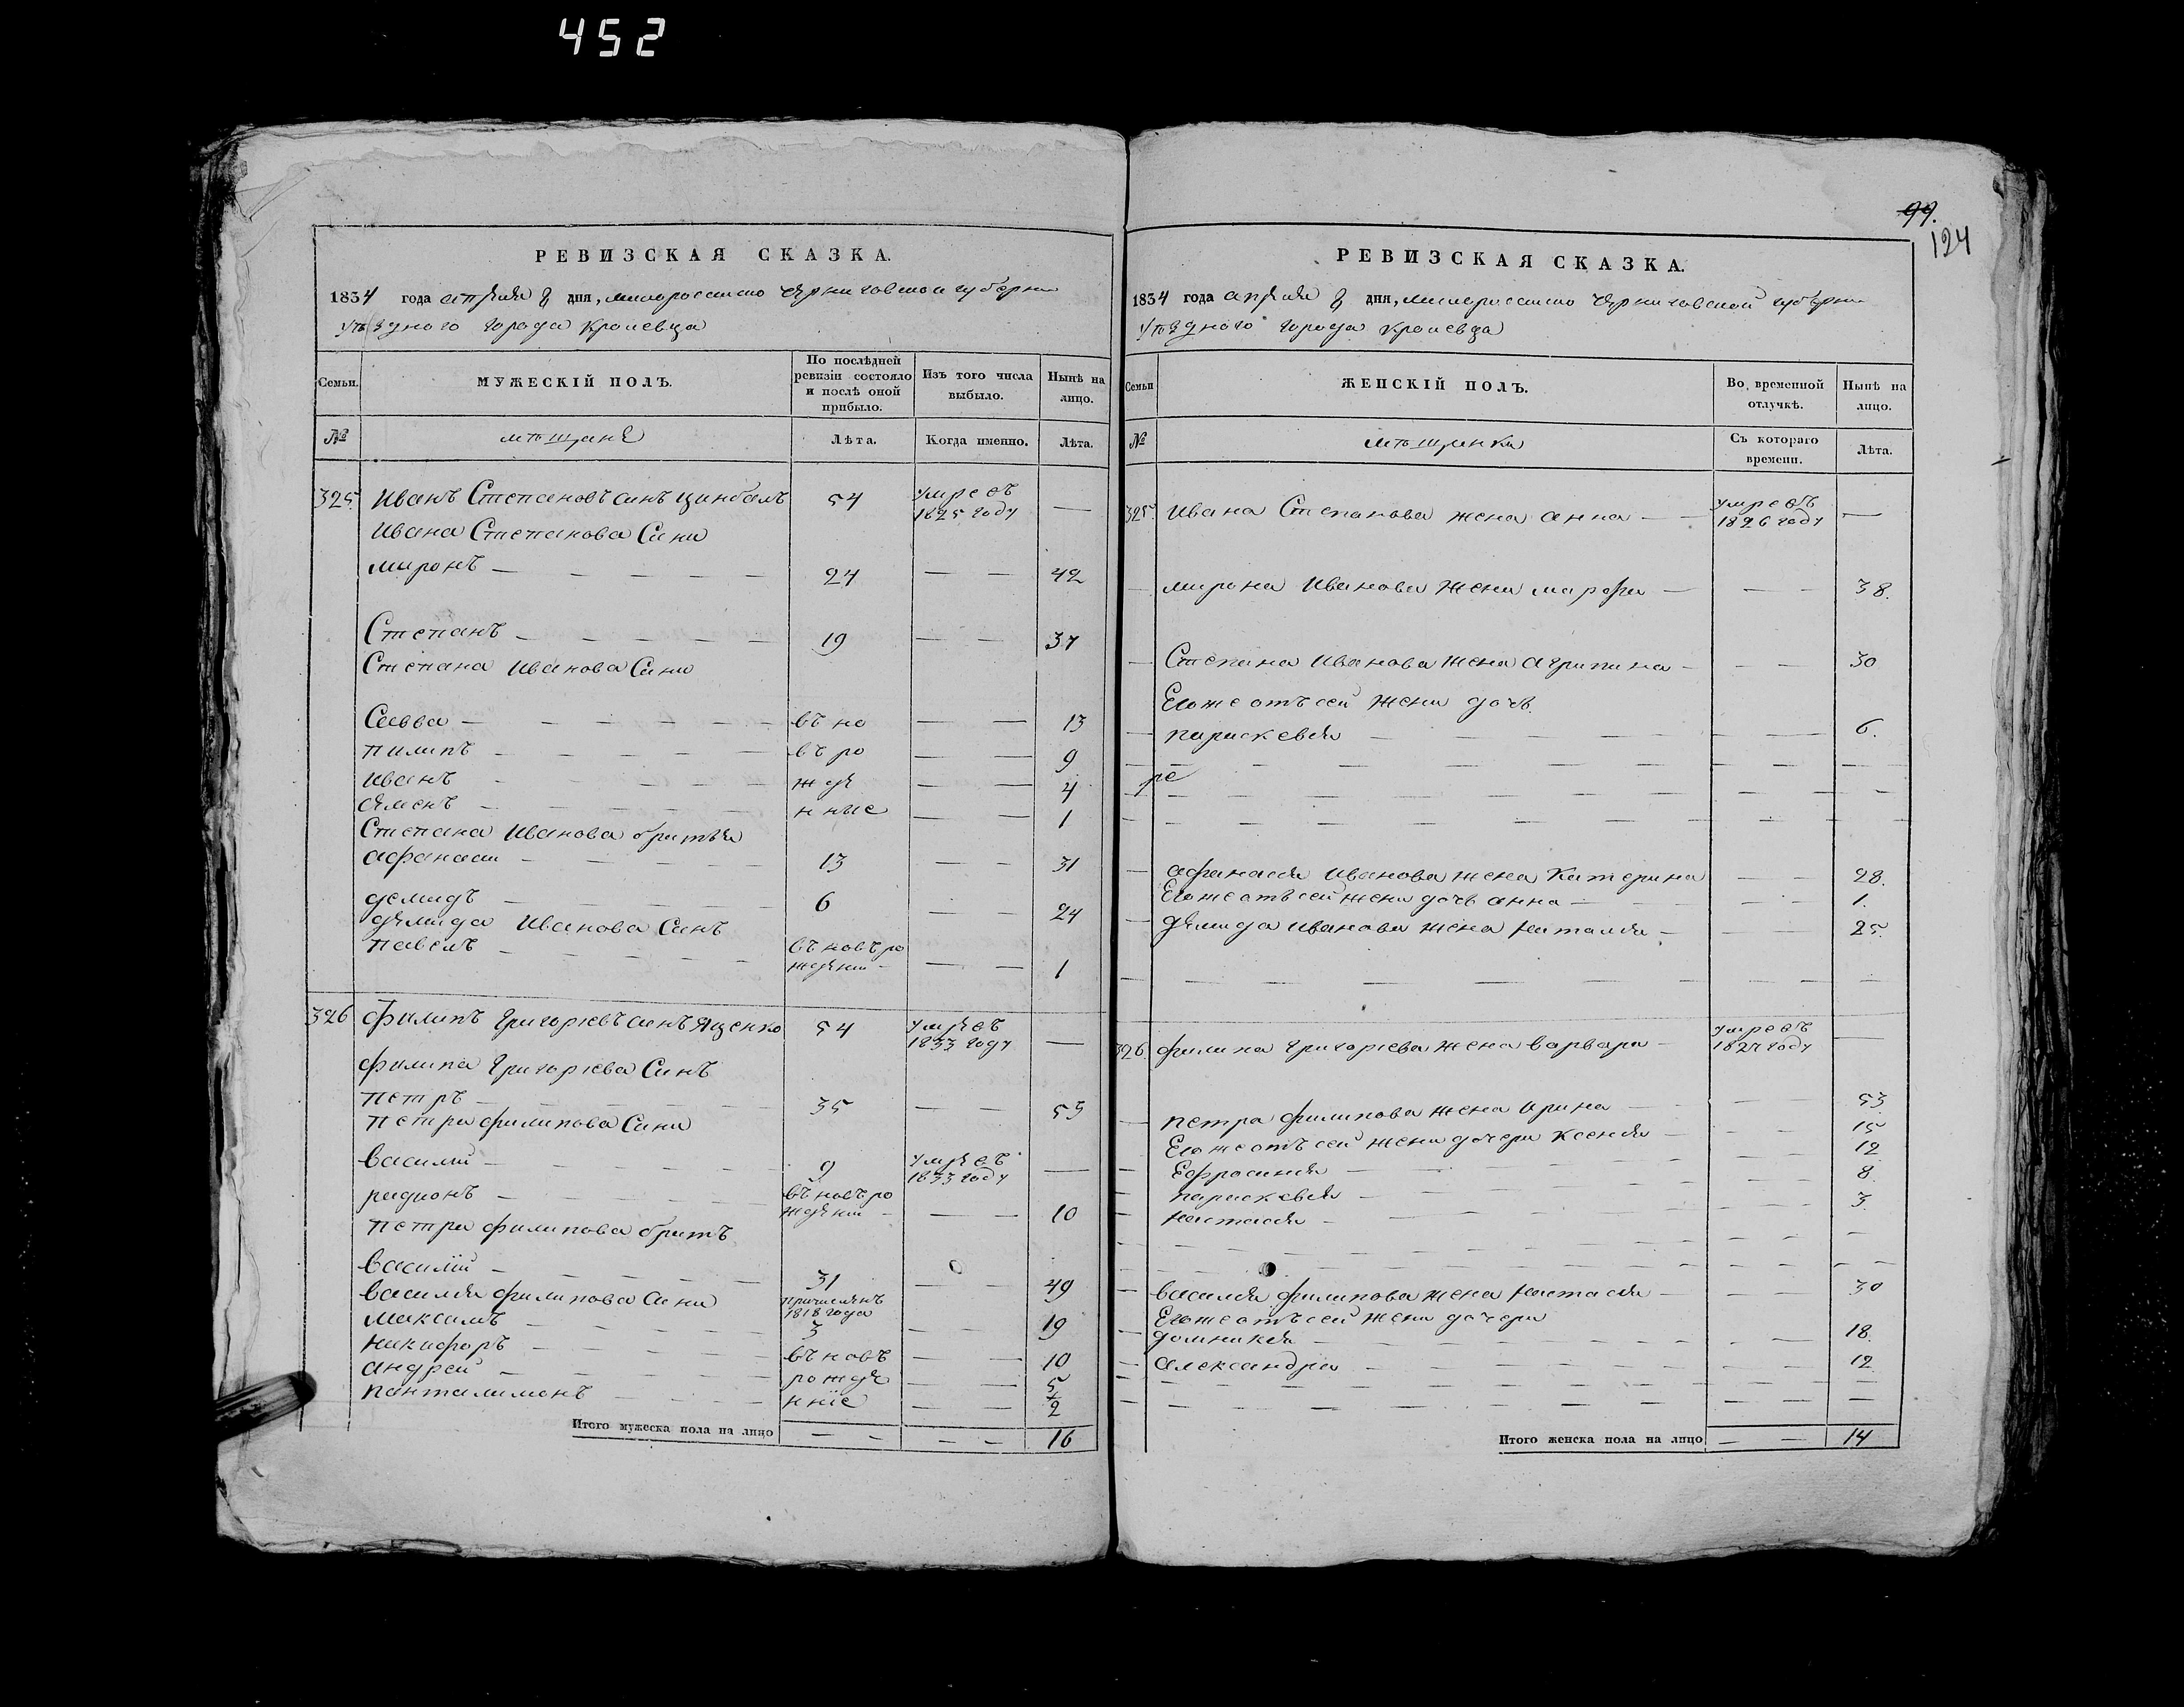 452
РЕВИЗСКАЯ СКАЗКА.
1834 года апреля дня, малоросийско Черниговской губерни
уѣздного города Кролевца
Семьи.
МУЖЕСКІЙ ПОЛЪ.
По послѣдней ревизіи состояло и послѣ оной прибыло.
Изъ того числа выбыло.
Нынѣ на лицо.
№
мѣщане
Лѣта.
Когда именно.
Лѣта.
325. Иванъ Степановъ синъ Цинбалъ 54 умре въ 1825 году —
Ивана Степанова сини
миронъ — 24 — 42
Степанъ — 19 — 37
Степана Иванова Сини
Савва — въ но — 13
пилипъ — въ ро — 9
иванъ — жде — 4
семенъ — нные — 1
Степана Иванова братья
афанаси — 13 — 31
демидъ — 6 — 24
демида Иванова Синъ
павелъ — въ новъ ро ждени — 1
326 филипъ Григориевъ синъ Яценко 54 умре въ 1833 году —
филипа Григориева Синъ
петръ — 35 — 53
петра филипова Сини
василий — 9 умре въ 1833 году —
родионъ — въ новъ ро ждени — 10
петра филипова братъ
василий — 31 — 49
василия филипова сини причисленъ 1818 года
максимъ — 3 — 19
никифоръ — въ новъ — 10
андрей — рожде — 5
панталимонъ — нніе — 2
Итого мужеска пола на лицо — — 16
99.
124
РЕВИЗСКАЯ СКАЗКА.
1834 года апреля дня, малоросийско Черниговской губерни
уѣздного города Кролевца
Семьи
ЖЕНСКІЙ ПОЛЪ.
Во временной отлучкѣ.
Нынѣ на лицо.
№
мѣщанки
Съ котораго времени.
Лѣта.
325. Ивана Степанова жена анна — умре въ 1826 году —
мирона Иванова жена марфа — 38.
Степана Иванова жена агрипина — 30
Егоже отъ сей жени дочь
параскевия — 6.
ре
афанасия Иванова жена Катерина — 28.
Егоже отъ сей жени дочь анна — 1.
демида иванова жена наталия — 25.
326. филипа Григориева жена варвара — умре въ 1827 году —
петра филипова жена ирина — 53
Егоже отъ сей жени дочери ксения — 15
Ефросиния — 12
параскевия — 8.
настасия — 3.
василия филипова жена настасия — 30
Егоже отъ сей жени дочери
домникия — 18.
александра — 12
Итого женска пола на лицо — — 14